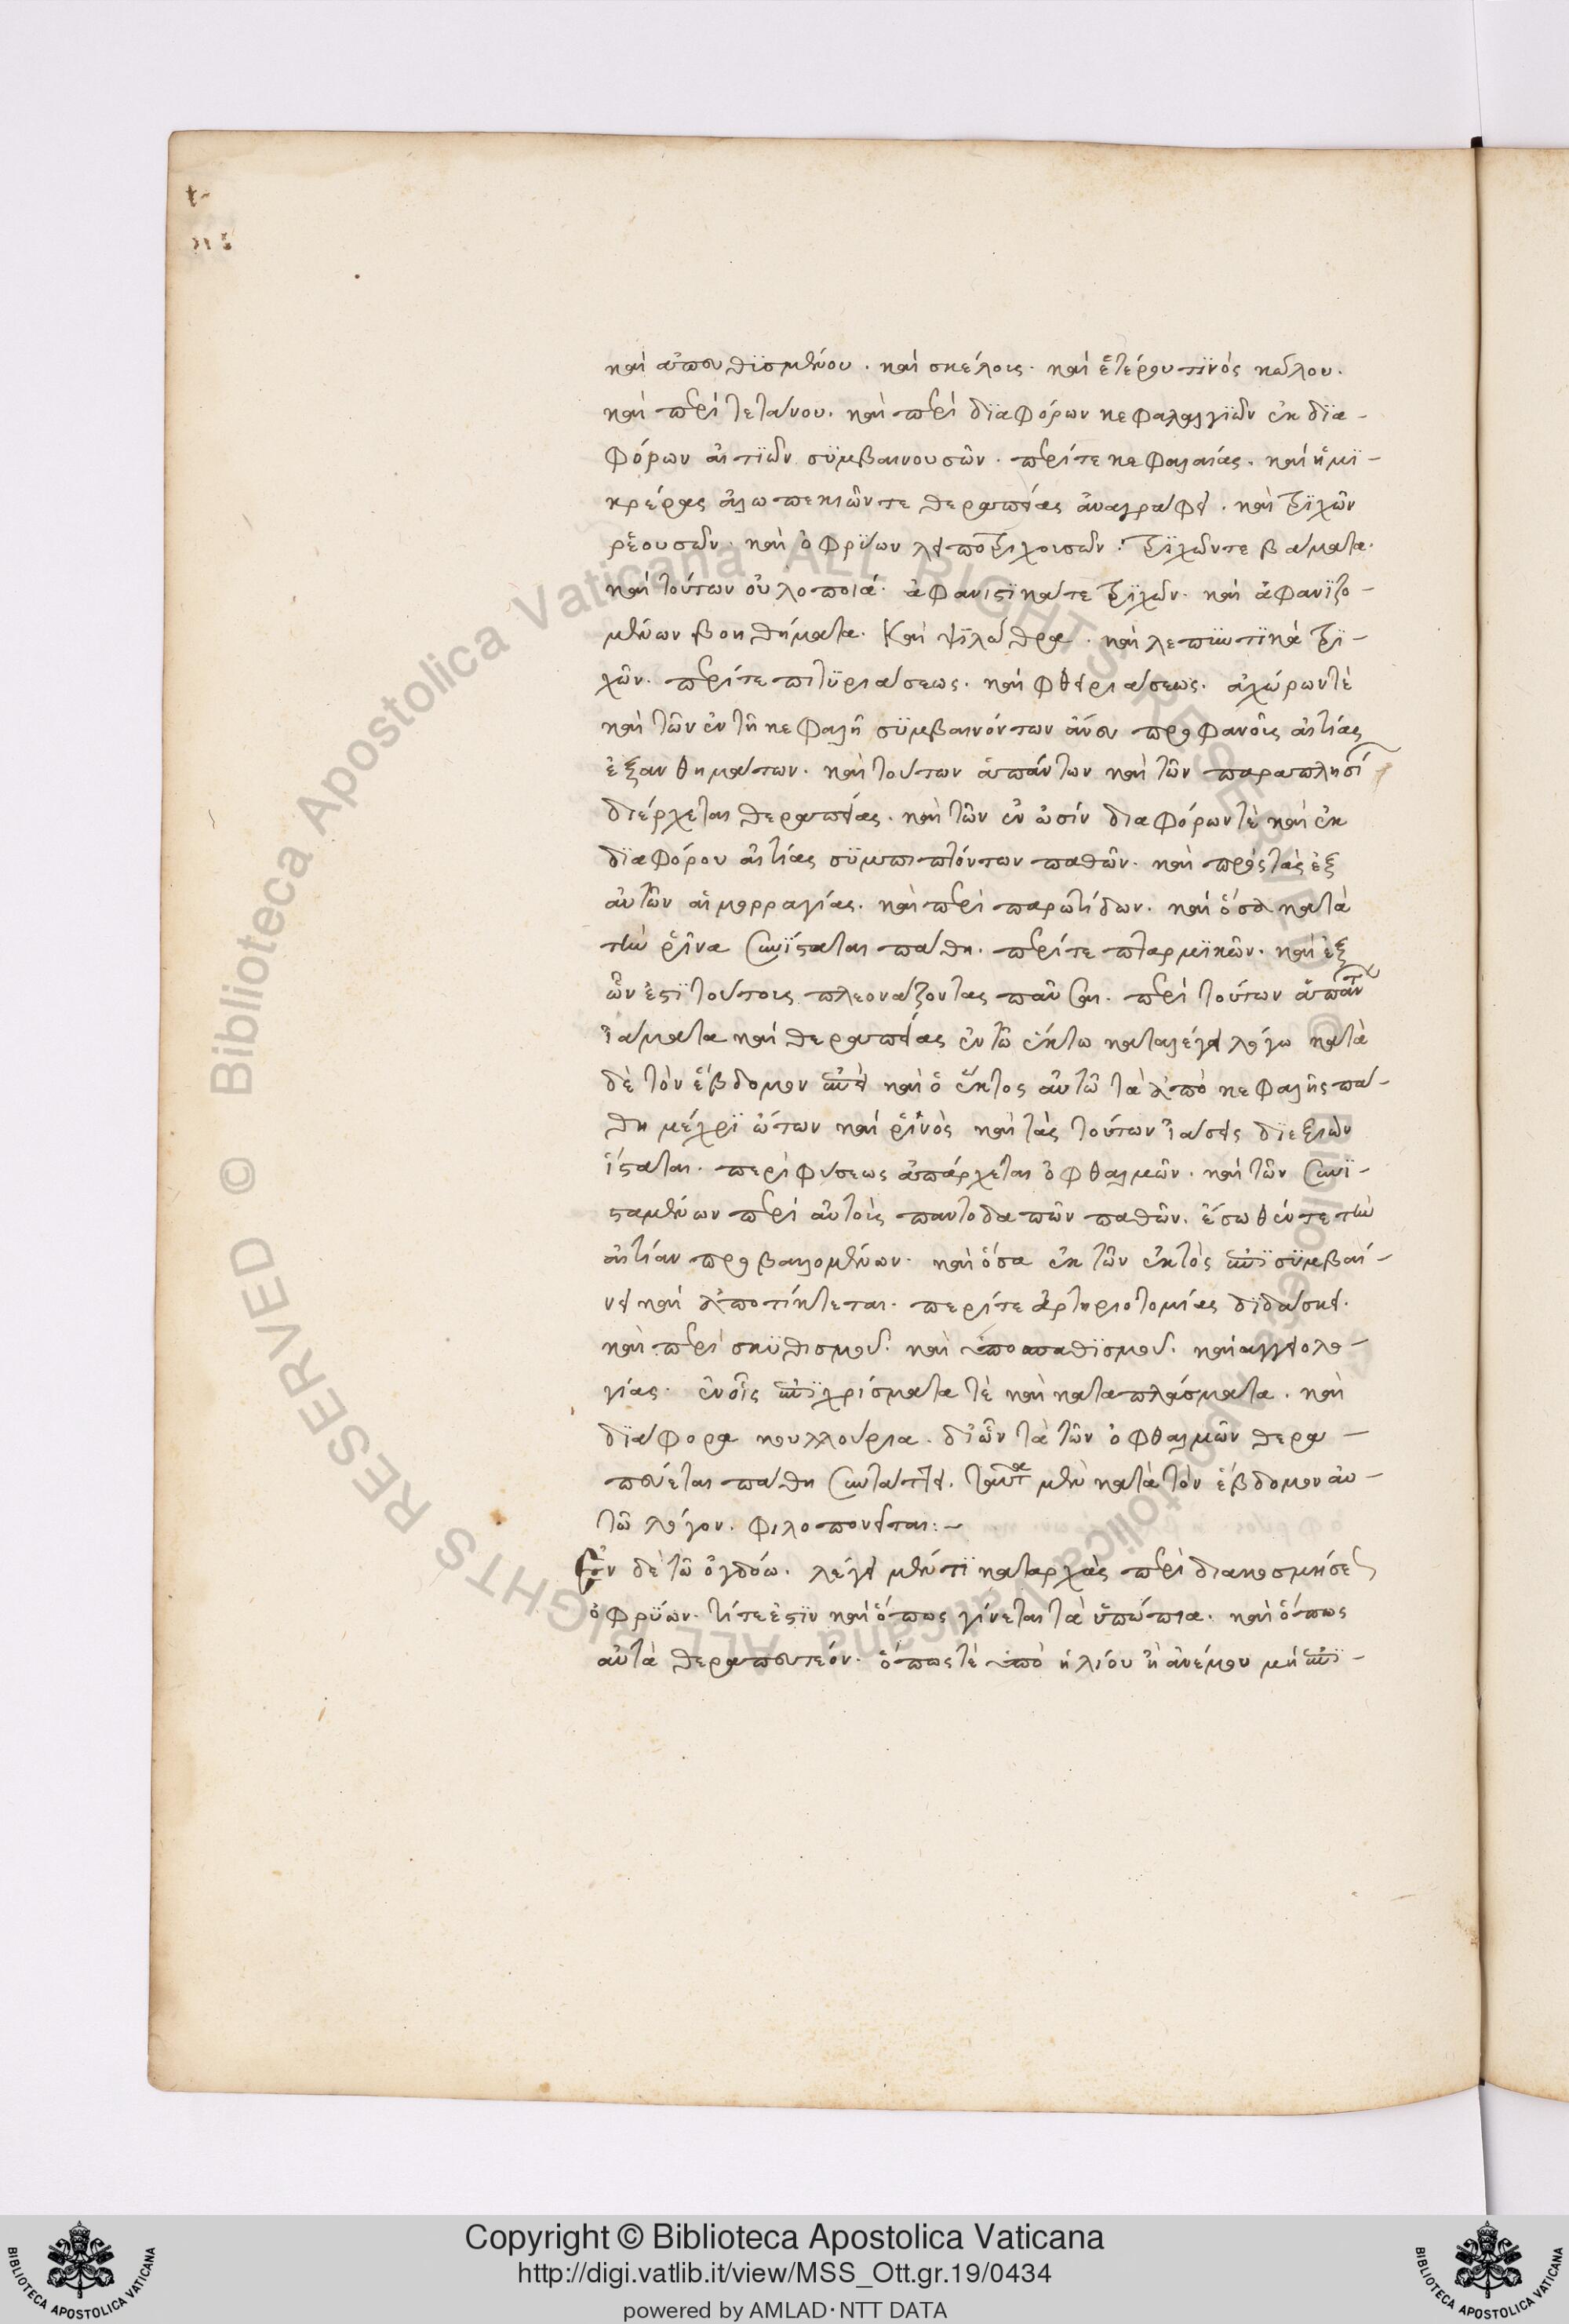 καὶ ἀπευθϊσμένου. καὶ σκέλους. καὶ ἑτέρου τϊνὸς κώλου.
καὶ περὶ τετάνου. καὶ περὶ δϊαφόρων κεφαλαλγϊῶν ἐκ δϊα-
φόρων αἰτϊῶν σϋμβαινουσῶν. περίτε κεφαλαίας. καὶ ἡμϊ-
κρέρας ἀλωπεκιῶντε θεραπείας ἀναγράφει. καὶ τρϊχῶν
ρεουσῶν. καὶ ὀφρύων λειποτρίχουσῶν. τρϊχῶντε βάματα.
καὶ τούτων οὐλοποιά. ἀφανιστϊκάτε τρϊχῶν. καὶ ἀφανϊζο-
μένων βοηθήματα. Καὶ ψϊλωθρα. καὶ λεπτυντϊκὰ τρϊ-
χῶν. περίτε πιτϋριάσεως. καὶ φθειριάσεως. ἀχώρωντὲ
καὶ τῶν ἐν τῆ κεφαλῆ σϋμβαινόντων ἄνευ προφανοῦς αἰτίας
ἐξανθημάτων. καὶ τούτων ἁπάντων καὶ τῶν παραπλησί
διέρχεται θεραπείας. καὶ τῶν ἐν ὠσίν διαφόρωντὲ καὶ ἐκ
δϊαφόρου αἰτίας σϋμπιπτόντων παθῶν. καὶ πρὸς τὰς ἐξ
αὐτῶν αἱμορραγίας. καὶ περὶ παρωτίδων. καὶ ὅσα κατὰ
τὴν ῥῖνα συνϊσταται πάθη. περίτε πταρμϊκῶν. καὶ ἐξ
ὧν ἐστϊ τούτους πλεονάζοντας παῦσαι. περὶ τούτων ἁπάντων
ἰάματα καὶ θεραπείας ἐν τῶ ἕκτω καταλέγει λόγω κατὰ
δὲ τὸν ἕβδομον ἐπεὶ καὶ ὁ ἕκτος αὐτῶ τὰ ἀπὸ κεφαλῆς πά-
θη μέχρϊ ὤτων καὶ ῥϊνὸς καὶ τὰς τούτων ἰάσεις δϊεξιὼν
ἵσταται. περὶ φύσεως ἀπάρχεται ὀφθαλμῶν. καὶ τῶν συνϊ-
σταμένων περὶ αὐτοὺς παντοδαπῶν παθῶν. ἔσωθέντε τὴν
αἰτίαν προβαλομένων. καὶ ὅσα ἐκ τῶν ἐκτὸς ἐπϊσϋμβαί-
νει καὶ ἀποτίκτεται. περίτε ἀρτηριοτομίας δϊδάσκει.
καὶ περὶ σκϋθισμοῦ. καὶ ὑποσπαθϊσμοῦ. καὶ αγγειολο-
γίας. ἐν οἷς ἐπϊχρίσματα τὲ καὶ καταπλάσματα. καὶ
δϊάφορα κουλλούρια. δι ὧν τὰ τῶν ὀφθαλμῶν θερα-
πεύεται πάθη συντάττει. ταῦτα μὲν κατὰ τὸν ἕβδομον αὐ-
τῶ λόγον. φιλοπονεῖται:-
Ἐν δὲ τῶ ὀγδόω. λέγει μέντϊ καταρχὰς περὶ διακοσμήσε
ὀφρϋων. τίτε ἐστϊν καὶ ὅπως γίνεται τὰ ὑπώπια. καὶ ὅπως
αὐτὰ θεραπευτέον. ὅπως τὲ ὑπὸ ἡλίου ἢ ἀνέμου μὴ ἐπϊ-
Copyright © Biblioteca Apostolica Vaticana
http://digi.vatlib.it/view/MSS_Ott.gr.19/0434
powered by AMLAD·NTT DATA